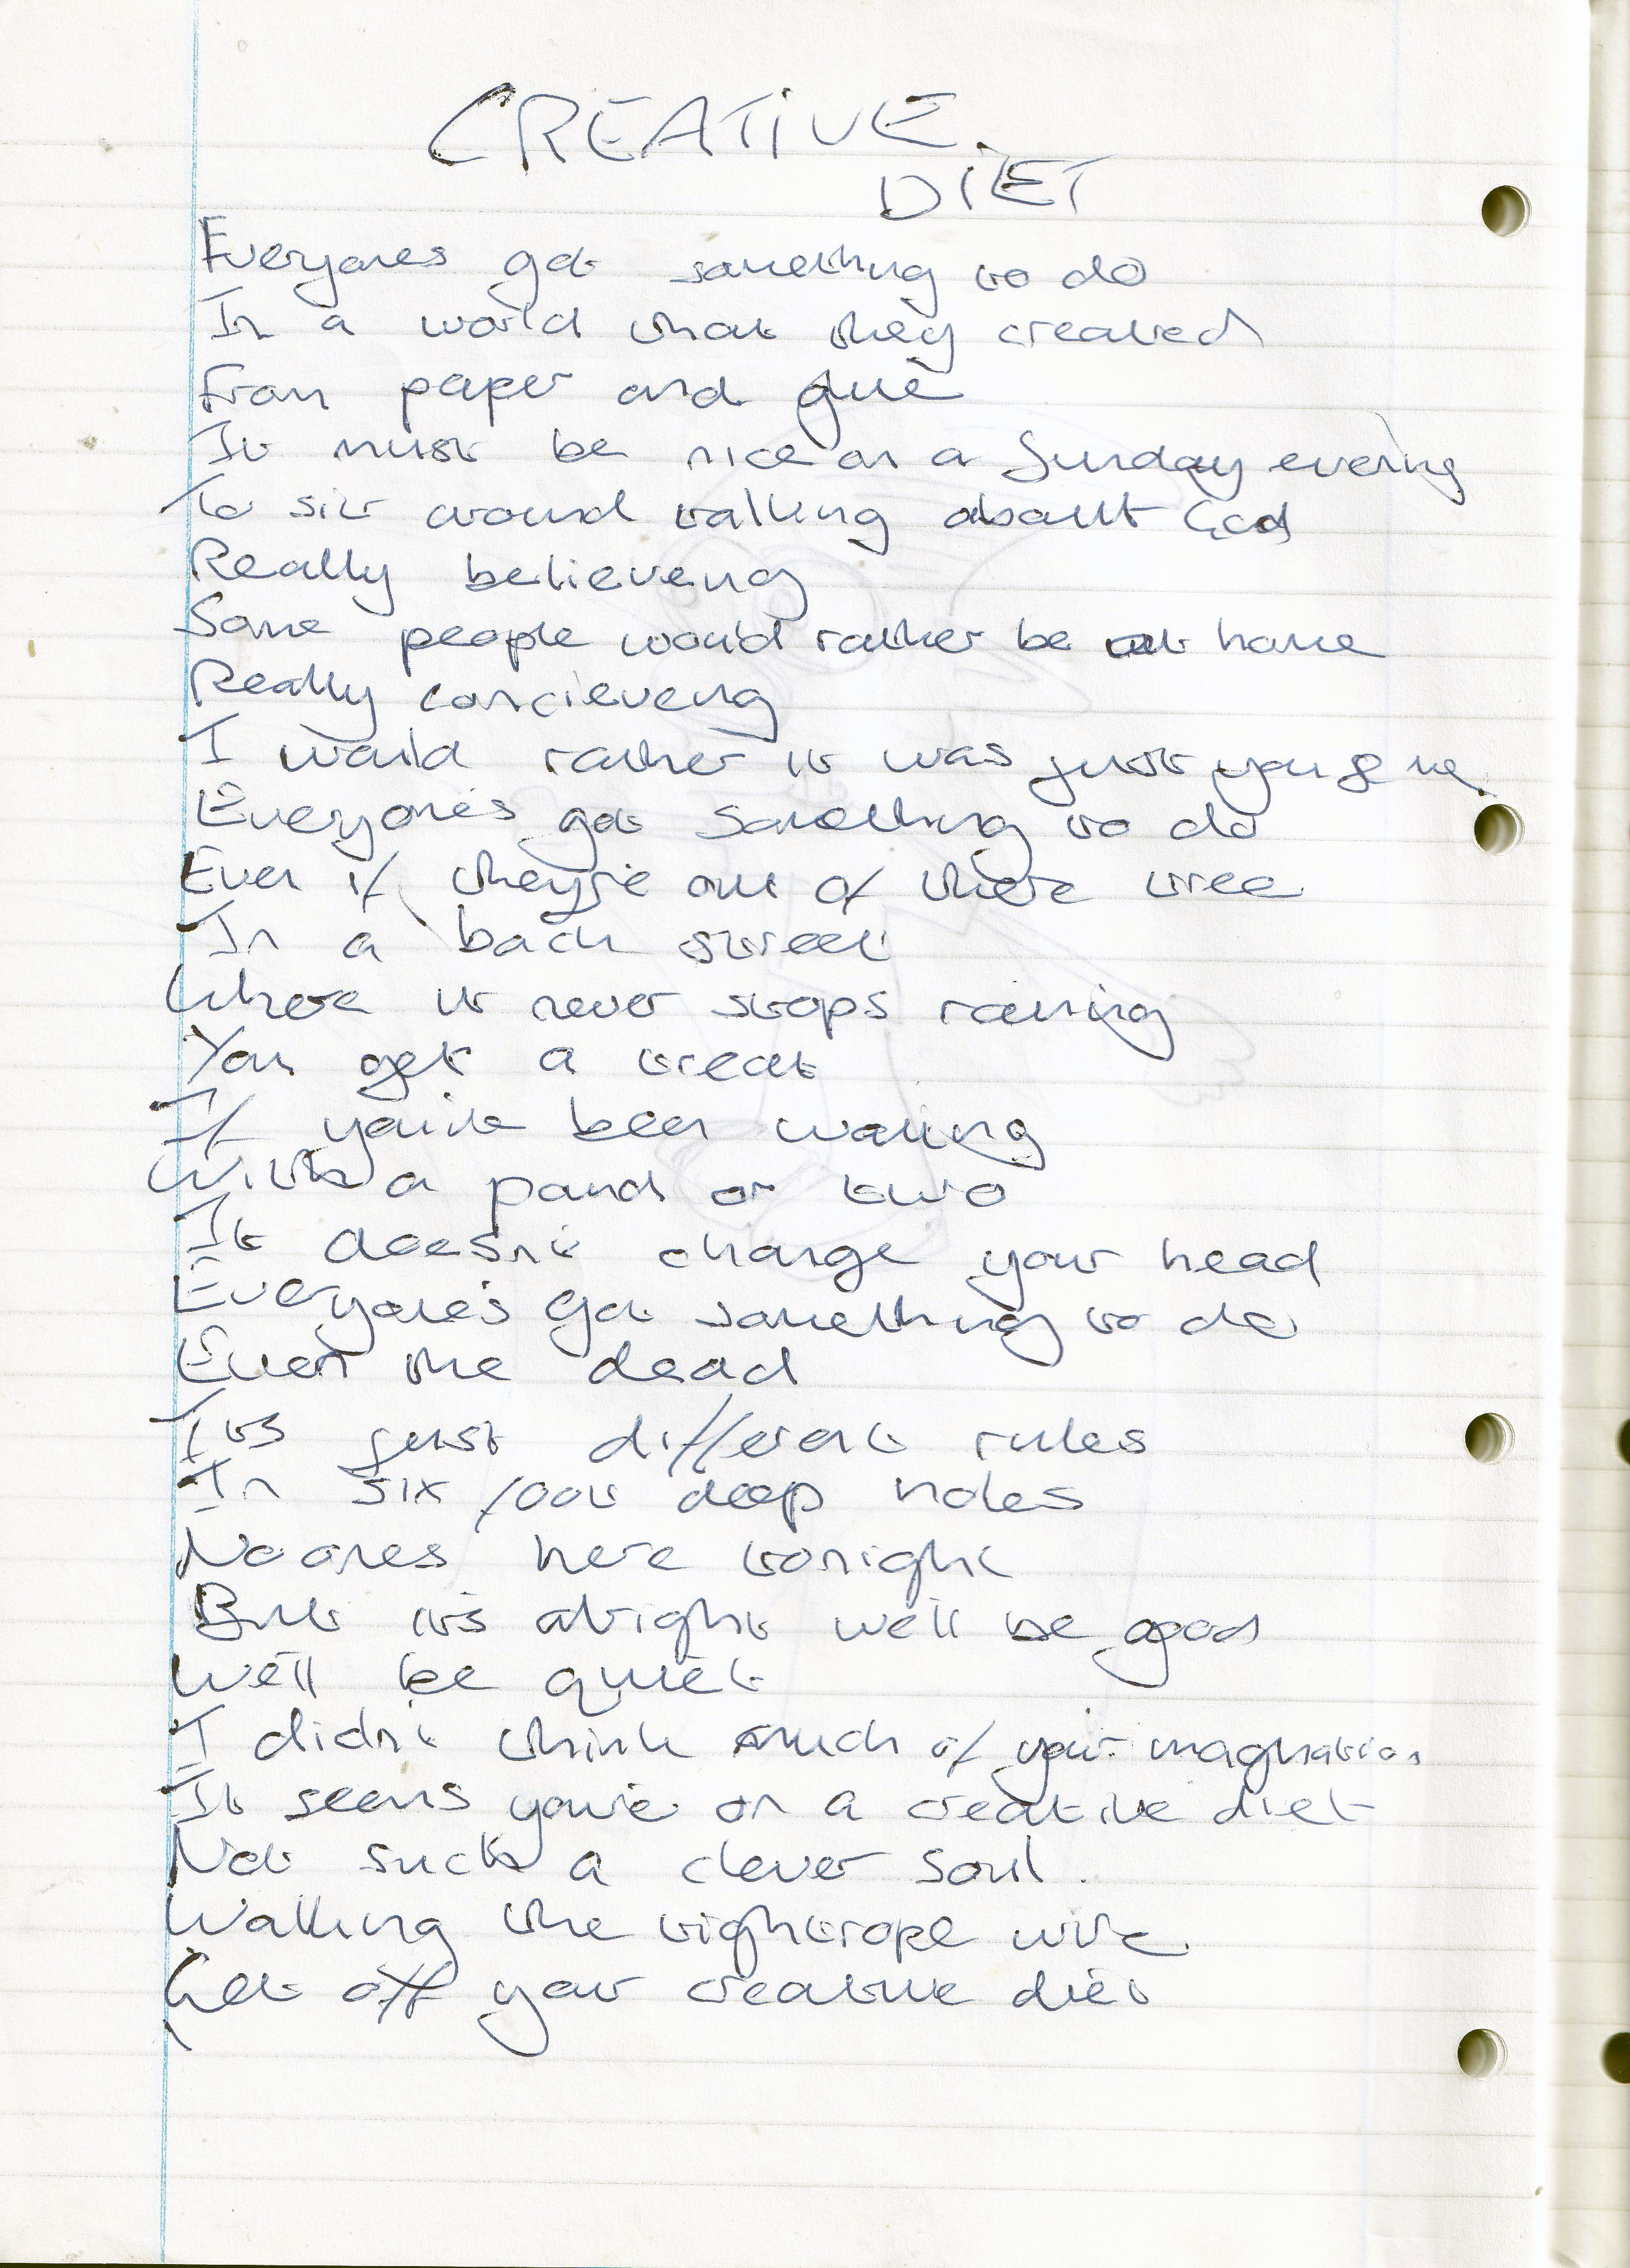 CREATIVE
DIET
Everyones got something to do
In a world that they created
From paper and glue
It must be nice on a Sunday evening
To sit around talking about God
Really believeng
Some people would rather be at home
Really concieveng
I would rather it was just you & me
Everyone's got something to do
Even if they're out of there tree
In a back street
Where it never stops raining
You get a treat
If you've been waiting
With a pound or two
It doesn't change your head
Everyone's got something to do
Even the dead
Its just different rules
In six foot deep holes
No ones here tonight
But it's alright we'll be good
We'll be quiet
I didn't think much of your imagination
It seems you're on a creative diet
Not such a clever soul.
Walking the tightrope wire
Get off your creative diet